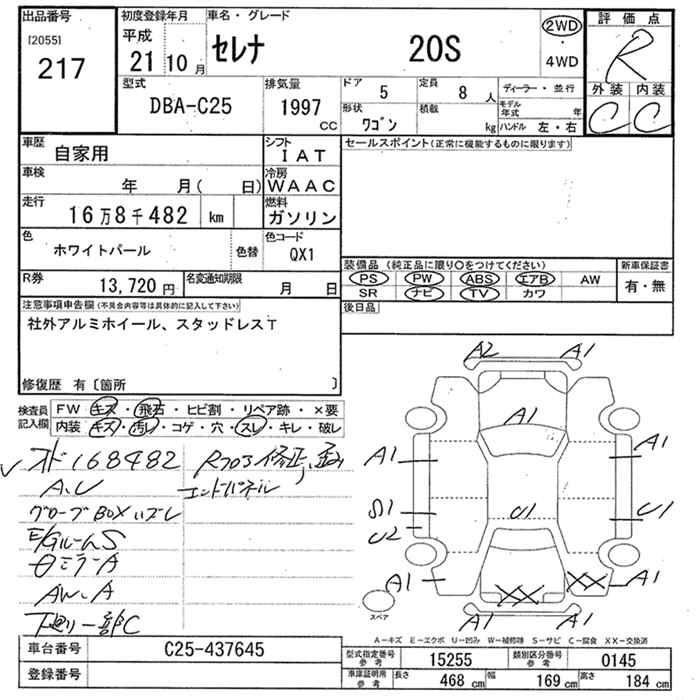 出品番号
[2055]
217
初度登録年月
平成
21 10 月
車名・グレード
セレナ 20S
2WD
4WD
評価点
R
外装 内装
C C
型式
DBA-C25
排気量
1997
CC
ドア 5
定員 8 人
ディーラー・並行
形状 ワゴン
積載 kg
モデル年式 年
ハンドル 左・右
車歴
自家用
シフト
IAT
セールスポイント(正常に機能するものに限ります)
車検
年 月( 日)
冷房
WAAC
走行
16万8千482 km
燃料
ガソリン
色
ホワイトパール
色替
色コード
QX1
R券
13,720円
名変通知期限
月 日
装備品 (純正品に限り〇をつけてください)
PS PW ABS エアB AW
SR ナビ TV カワ
新車保証書
有・無
後日品
注意事項申告欄(不具合内容等は具体的に記入して下さい)
社外アルミホイール、スタッドレスT
修復歴 有〔箇所 〕
検査員記入欄
FW キズ・飛石・ヒビ割・リペア跡・×要
内装 キズ・汚レ・コゲ・穴・スレ・キレ・破レ
オド168482
A.U
グローブBOXハズレ
E/GルームS
θミラーA
AW.A
下廻り一部C
エンドパネル
A2 A1
A1
A1 A1
U1 U1
U2
A1 XX XX A1
A1
スペア
A-キズ E-エクボ U-凹み W-補修跡 S-サビ C-腐食 XX-交換済
車台番号
C25-437645
登録番号
型式指定番号参考 15255
類別区分番号参考 0145
車庫証明用参考
長さ 468 cm
幅 169 cm
高さ 184 cm